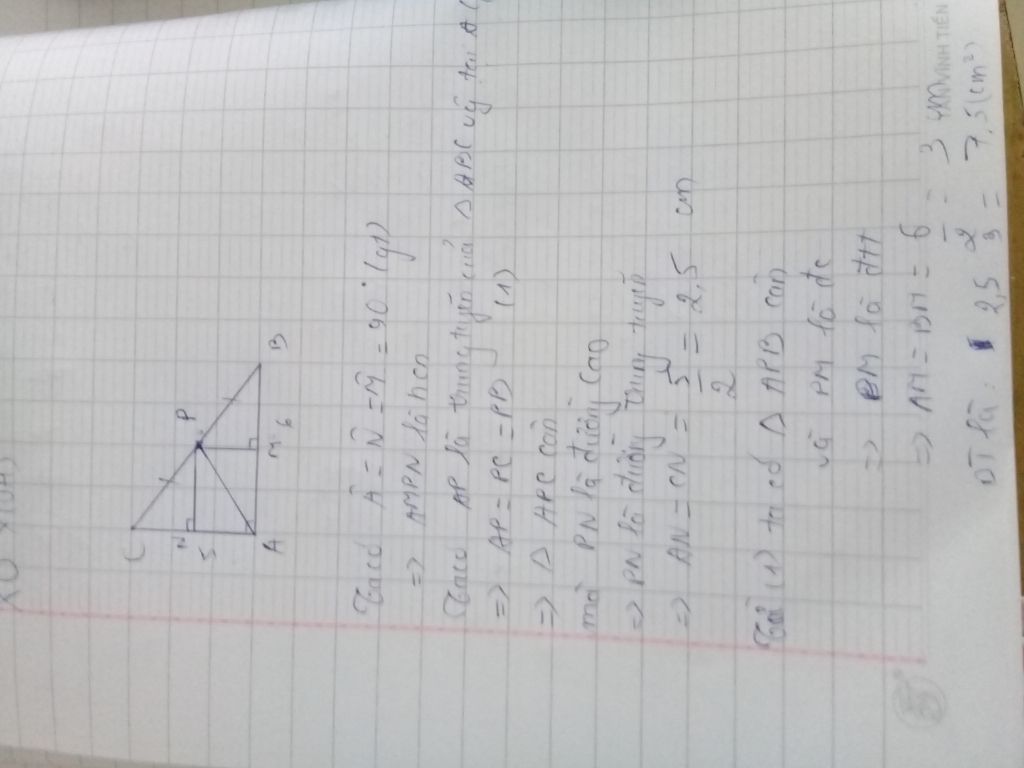 C
P
N
5
A
M
6
B
Ta có Â = N̂ = M̂ = 90° (gt)
=> AMPN là hcn
Ta có AP là trung tuyến của Δ ABC vg tại A
=> AP = PC = PB (1)
=> Δ APC cân
mà PN là đường cao
=> PN là đường trung tuyến
=> AN = CN = 5/2 = 2,5 cm
Từ (1) ta có Δ APB cân
và PM là đc
=> PM là đtt
=> AM = BM = 6/2 = 3
DT là: 2,5 . 3 = 7,5 (cm²)
VĨNH TIẾN